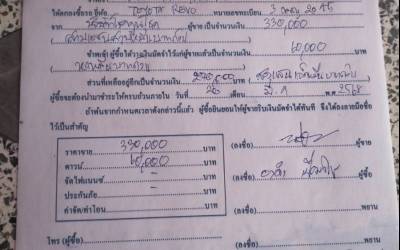 ได้ตกลงซื้อรถ ยี่ห้อ TOYOTA REVO หมายเลขทะเบียน
จาก ผู้ขาย เป็นจำนวนเงิน 330,000
(สามแสนสามหมื่นบาทถ้วน)
ข้าพเจ้า ผู้ซื้อ ได้วางเงินมัดจำไว้แก่ผู้ขายแล้วเป็นจำนวนเงิน 60,000
(หกหมื่นบาทถ้วน)
ส่วนที่เหลืออีกเป็นจำนวนเงิน 270,000 (สองแสนเจ็ดหมื่นบาทถ้วน)
ผู้ซื้อจะต้องนำมาชำระให้ครบถ้วนภายใน วันที่ 26 เดือน มี.ค พ.ศ. 2568
ถ้าพ้นจากกำหนดเวลาดังกล่าวแล้ว ผู้ซื้อยินยอมให้ผู้ขายริบเงินมัดจำได้ทันที จึงได้ลงลายมือชื่อ
ไว้เป็นสำคัญ
ราคาขาย 330,000 บาท
ดาวน์ 60,000 บาท
จัดไฟแนนซ์ - บาท
ประกันภัย - บาท
ค่าชุด/ค่าโอน บาท
(ลงชื่อ) ผู้ขาย
(ลงชื่อ) ผู้ซื้อ
(ลงชื่อ) พยาน
(ลงชื่อ) พยาน
โทร (ผู้ซื้อ) โทร (ผู้ขาย)